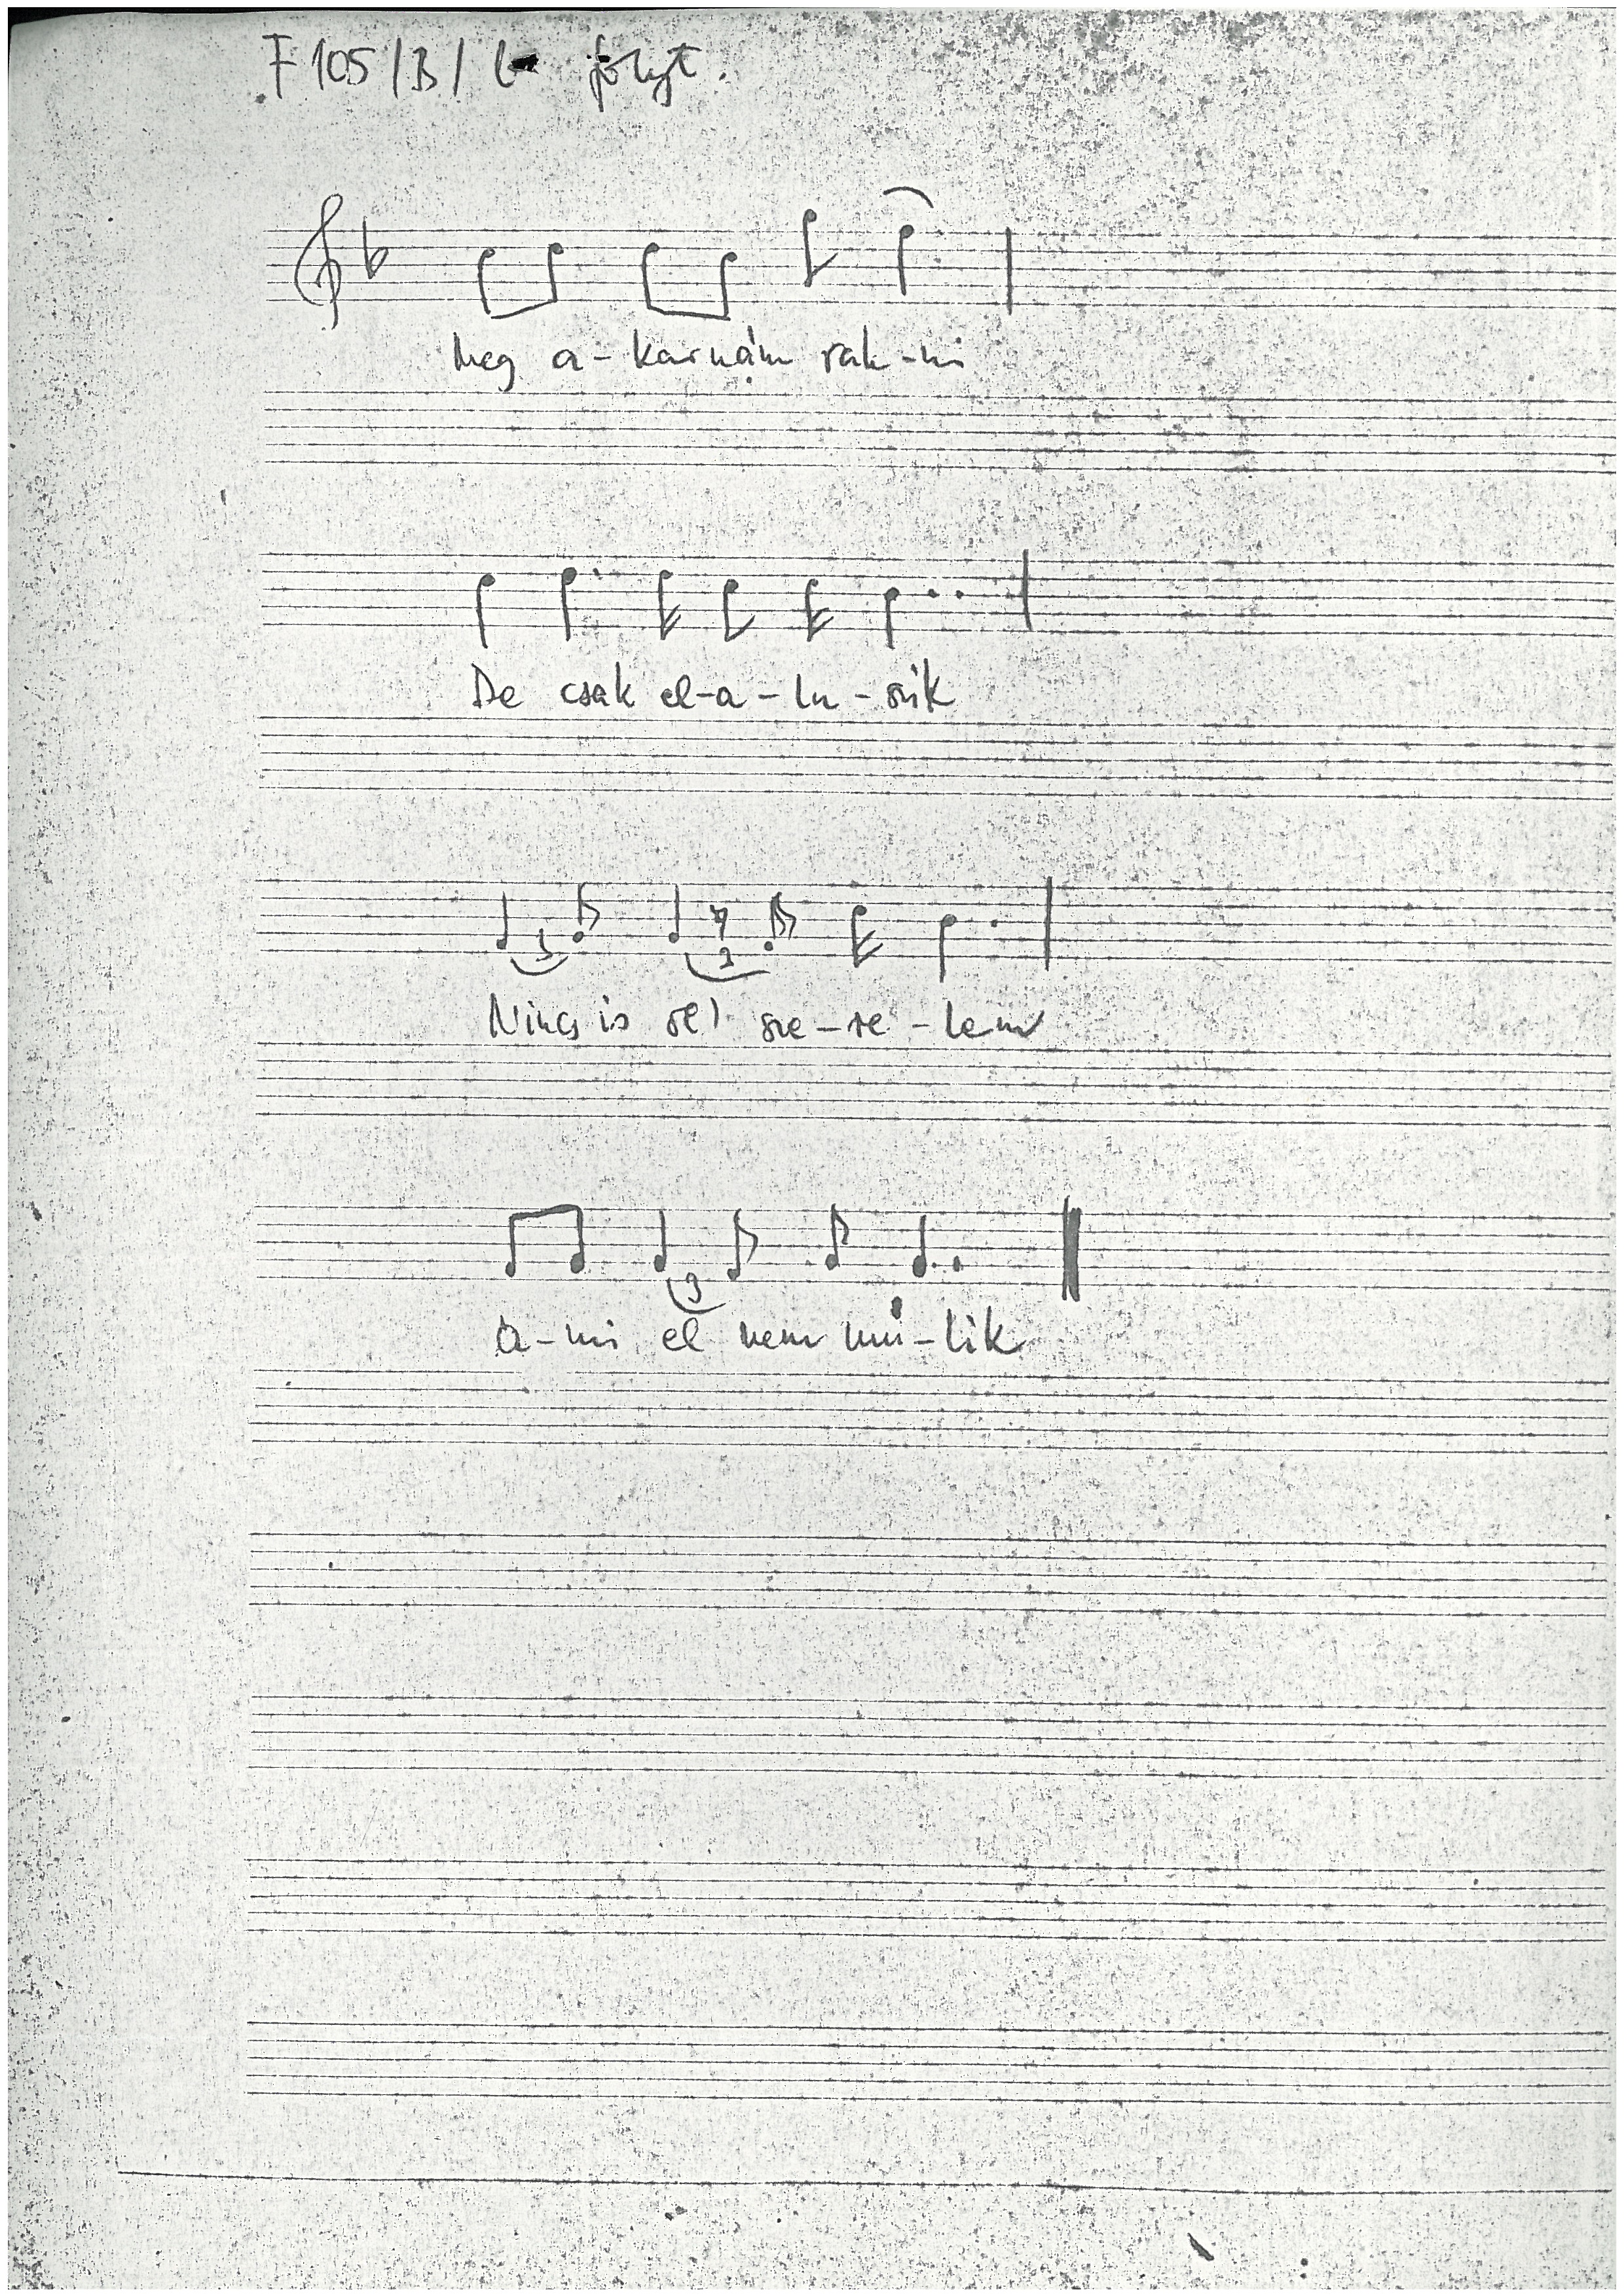 F 105/B/ folyt.
Meg a-karnám rak-ni
De csak el-a-lu-szik
3 3
Nincs is oly sze-re-lem
3
a-mi el nem mú-lik